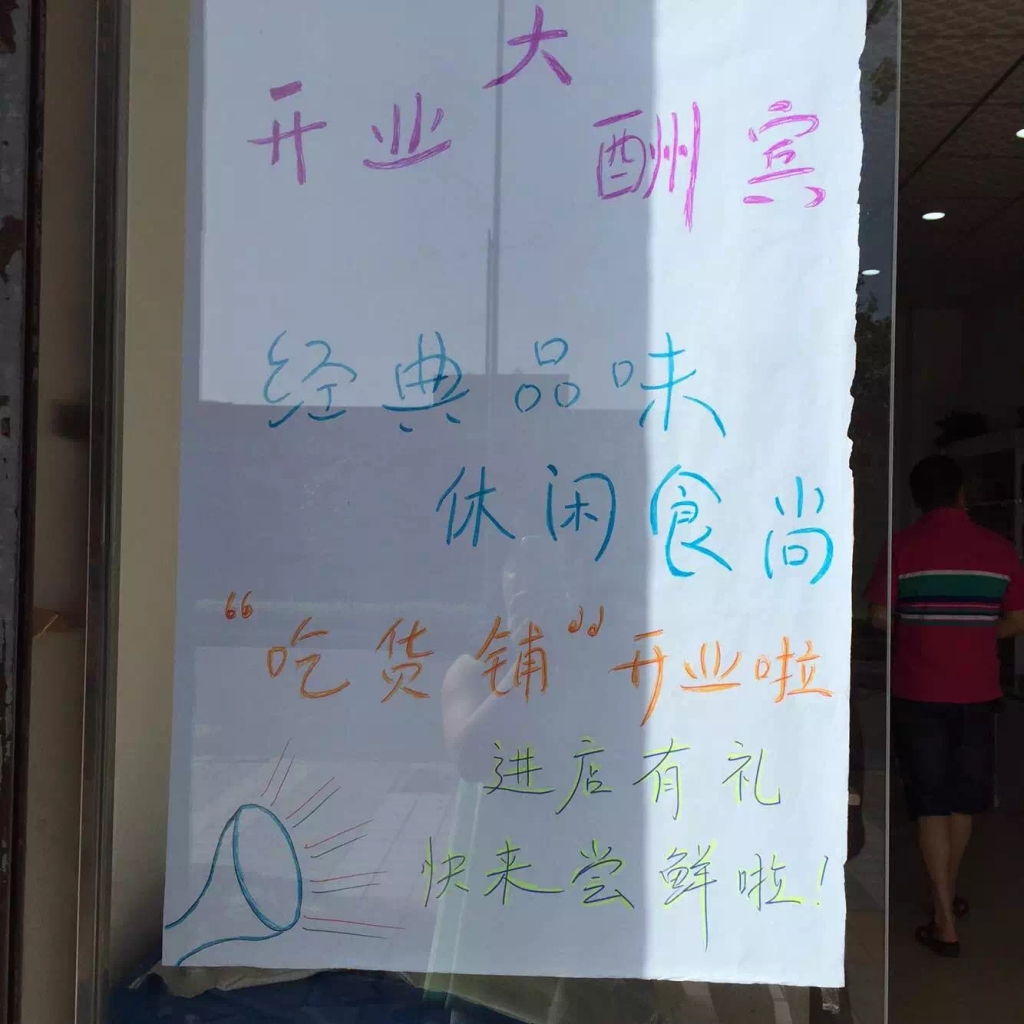 开业大酬宾
经典品味
休闲食尚
“吃货铺”开业啦
进店有礼
快来尝鲜啦！